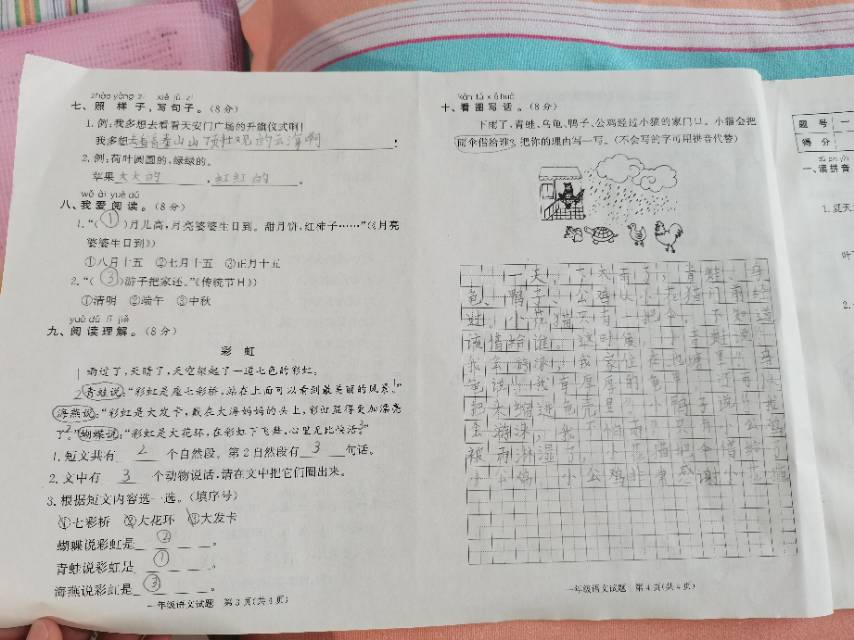 zhào yàng zi xiě jù zi
七、照 样 子,写 句 子。(8 分)
1. 例:我多想去看看天安门广场的升旗仪式啊!
我多想去看看泰山山顶壮观的云海啊!
2. 例:荷叶圆圆的,绿绿的。
苹果大大的,红红的。
wǒ ài yuè dú
八、我 爱 阅 读。(8 分)
1.“(①)月儿高,月亮婆婆生日到。甜月饼,红柿子……”(《月亮
婆婆生日到》)
①八月十五 ②七月十五 ③正月十五
2.“(③)游子把家还。”(《传统节日》)
①清明 ②端午 ③中秋
yuè dú lǐ jiě
九、阅 读 理 解。(8 分)
彩 虹
1 雨过了,天晴了,天空架起了一道七色的彩虹。
2 青蛙说:“彩虹是座七彩桥,站在上面可以看到最美丽的风景!”
海燕说:“彩虹是大发卡,戴在大海妈妈的头上,彩虹显得更加漂亮
了。”蝴蝶说:“彩虹是大花环,在彩虹下飞舞,心里无比快活。”
1. 短文共有 2 个自然段。第 2 自然段有 3 句话。
2. 文中有 3 个动物说话,请在文中把它们圈出来。
3. 根据短文内容选一选。(填序号)
①七彩桥 ②大花环 ③大发卡
蝴蝶说彩虹是 ② 。
青蛙说彩虹是 ① 。
海燕说彩虹是 ③ 。
一年级语文试题 第 3 页(共 4 页)
kàn tú xiě huà
十、看 图 写 话。(8 分)
下雨了,青蛙、乌龟、鸭子、公鸡经过小猫的家门口。小猫会把
雨伞借给谁?把你的理由写一写。(不会写的字可用拼音代替)
一天,下大雨了,青蛙、乌
龟、鸭子、公鸡从小花猫门前经
过,小花猫只有一把伞,不知道
该借给谁。这时候,小青蛙说:
我会游泳,我家住在池塘里。乌
龟说:我有厚厚的龟壳,
起来缩进龟壳里。小鸭子说:我
会游泳,我不怕雨。只有小公鸡
被雨淋湿了,小花猫把伞借给了
小公鸡,小公鸡非常感谢小花猫
一年级语文试题 第 4 页(共 4 页)
题 号 一
得 分
一、读拼音
1. 夏天
2. 知